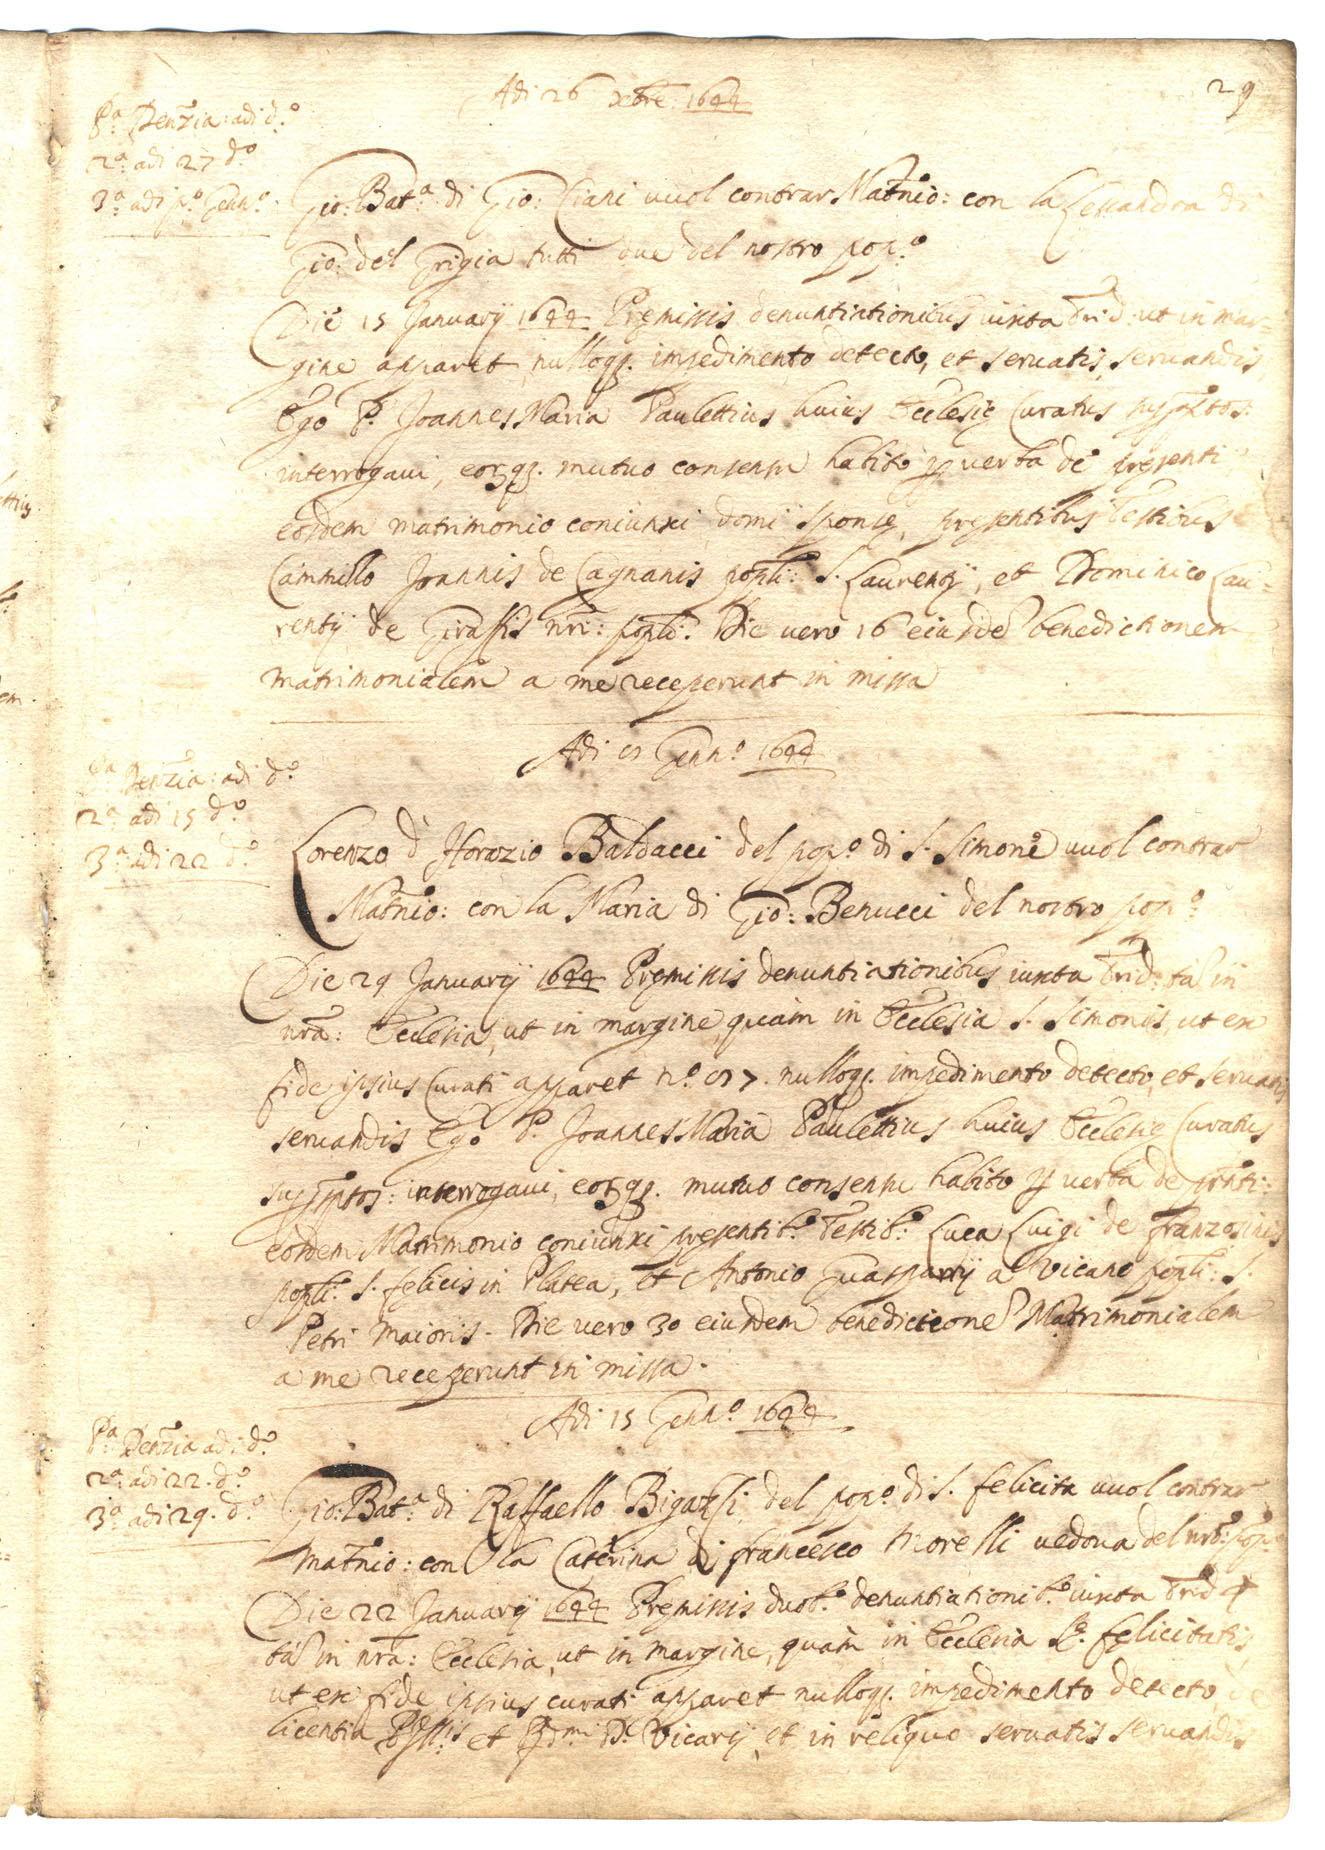 29
Adi 26 xbre: 1644
Pa: Denzia: adi do:
2a: adi 27 do:
3a: adi po: Genno:
Gio: Bata: di Gio: Ciani vuol contrar Matnio: con la Lessandra di
Gio: del Grigia tutti due del nostro popo:
Die 15 Januarij 1644 Premissis denuntiationibus iuxta Trid: ut in mar-
gine apparet, nulloq. impedimento detecto, et servatis servandis
Ego P. Joannes Maria Paulettius huius Ecclesie Curatus
interrogavi, eorq. mutuo consensu habito p verba de presenti
eosdem matrimonio coniunxi domi sponse, presentibus Testibus
Cammillo Joannis de Cagnanis popli: S. Laurentij, et Dominico Lau-
rentij de Girassis nri: popli: Die vero 16 eiusde benedictionem
matrimonialem a me receperunt in missa
Adi Genno: 1644
Pa: Denzia: adi do:
2a: adi 15 do:
3a: adi 22 do:
Lorenzo d' Horazio Baldacci del popo: di S. Simone vuol contrar
Matnio: con la Maria di Gio: Benucci del nostro popo:
Die 29 Januarij 1644 Premissis denuntiationibus iuxta Trid: ta in
nra: Ecclesia, ut in margine, quam in Ecclesia S. Simonis, ut ex
fide ipsius Curati apparet no: nulloq. impedimento detecto, et servatis
servandis Ego P. Joannes Maria Paulettius huius Ecclesie Curatus
interrogavi, eorq. mutuo consensu habito p verba de prnti:
eosdem Matrimonio coniunxi presentib: Testib: Luca Luigi de Franzosinis
popli: S. Felicis in Platea, et Antonio Guasparrij a Vicano popli: S.
Petri Maioris. Die vero 30 eiusdem benedictione Matrimonialem
a me receperunt in missa.
Adi 15 Genno: 1644
Pa: Denzia adi do:
2a: adi 22. do:
3a: adi 29. do:
Gio: Bata: di Raffaello Bigazzi del popo: di S. Felicita vuol contrar
Matnio: con la Caterina di Francesco Morelli vedova del nro: popo:
Die 22 Januarij 1644 Premissis duob: denuntiationib: iuxta Trid
ta in nra: Ecclesia, ut in margine, quam in Ecclesia Se: Felicitatis
ut ex fide ipsius curati apparet nulloq. impedimento detecto de
licentia et Vicarij, et in reliquo servatis servandis